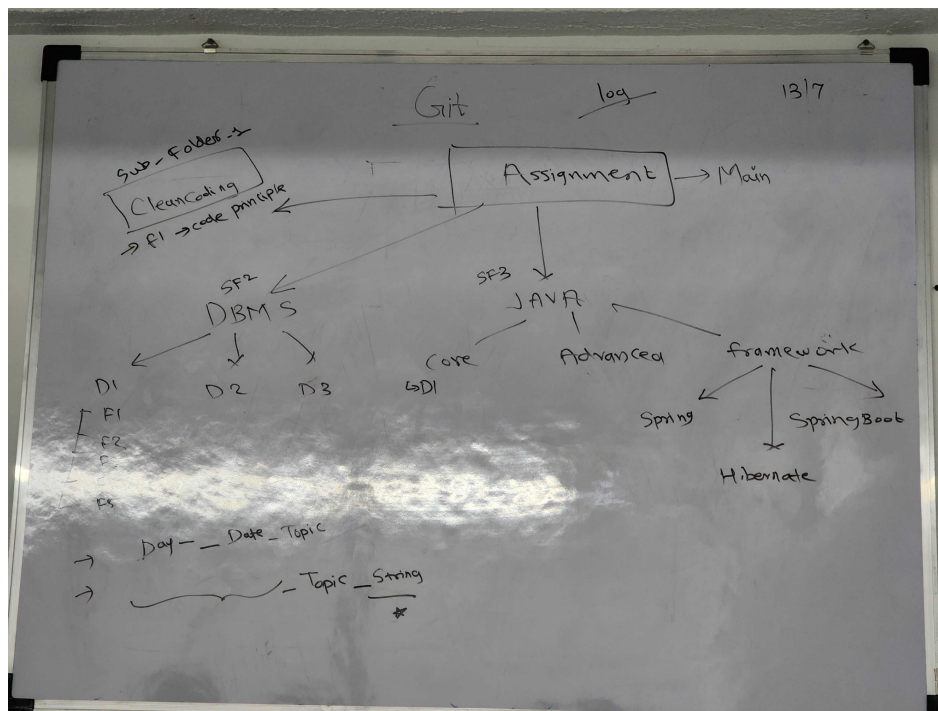 Git
log
13/7
Sub-Folder-1
CleanCoding
→ F1 → code principle
Assignment → Main
SF2
DBMS
SF3
JAVA
Core
Advanced
framework
D1
D2
D3
↳D1
F1
F2
F5
Spring
SpringBoot
Hibernate
→ Day-_Date_Topic
→ _Topic_String